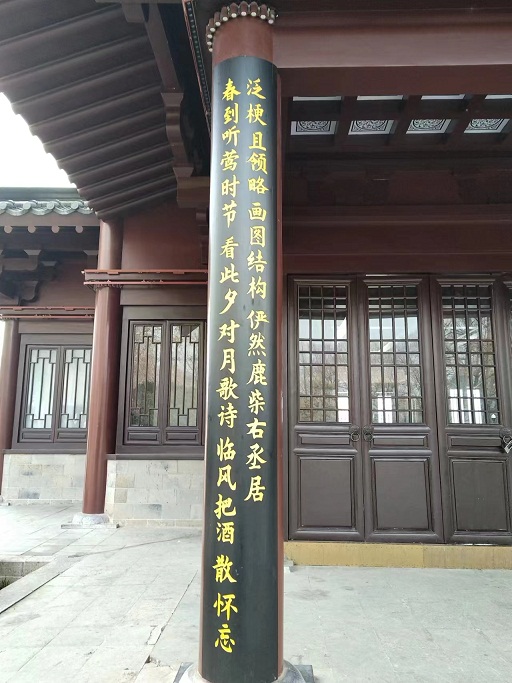 泛梗且领略画图结构俨然鹿柴右丞居
春到听莺时节看此夕对月歌诗临风把酒散怀忘